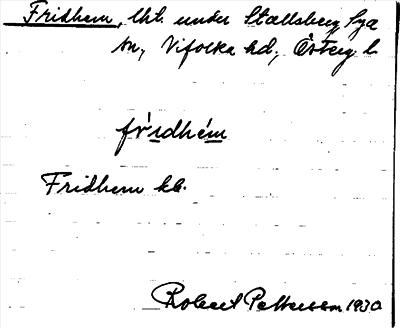 Fridhem, lht. under Stallsberg, Sya
sn, Vifolka hd, Österg. l.
fri̍dhe̍m
Fridhem kb.
Robert Pettersson 1930